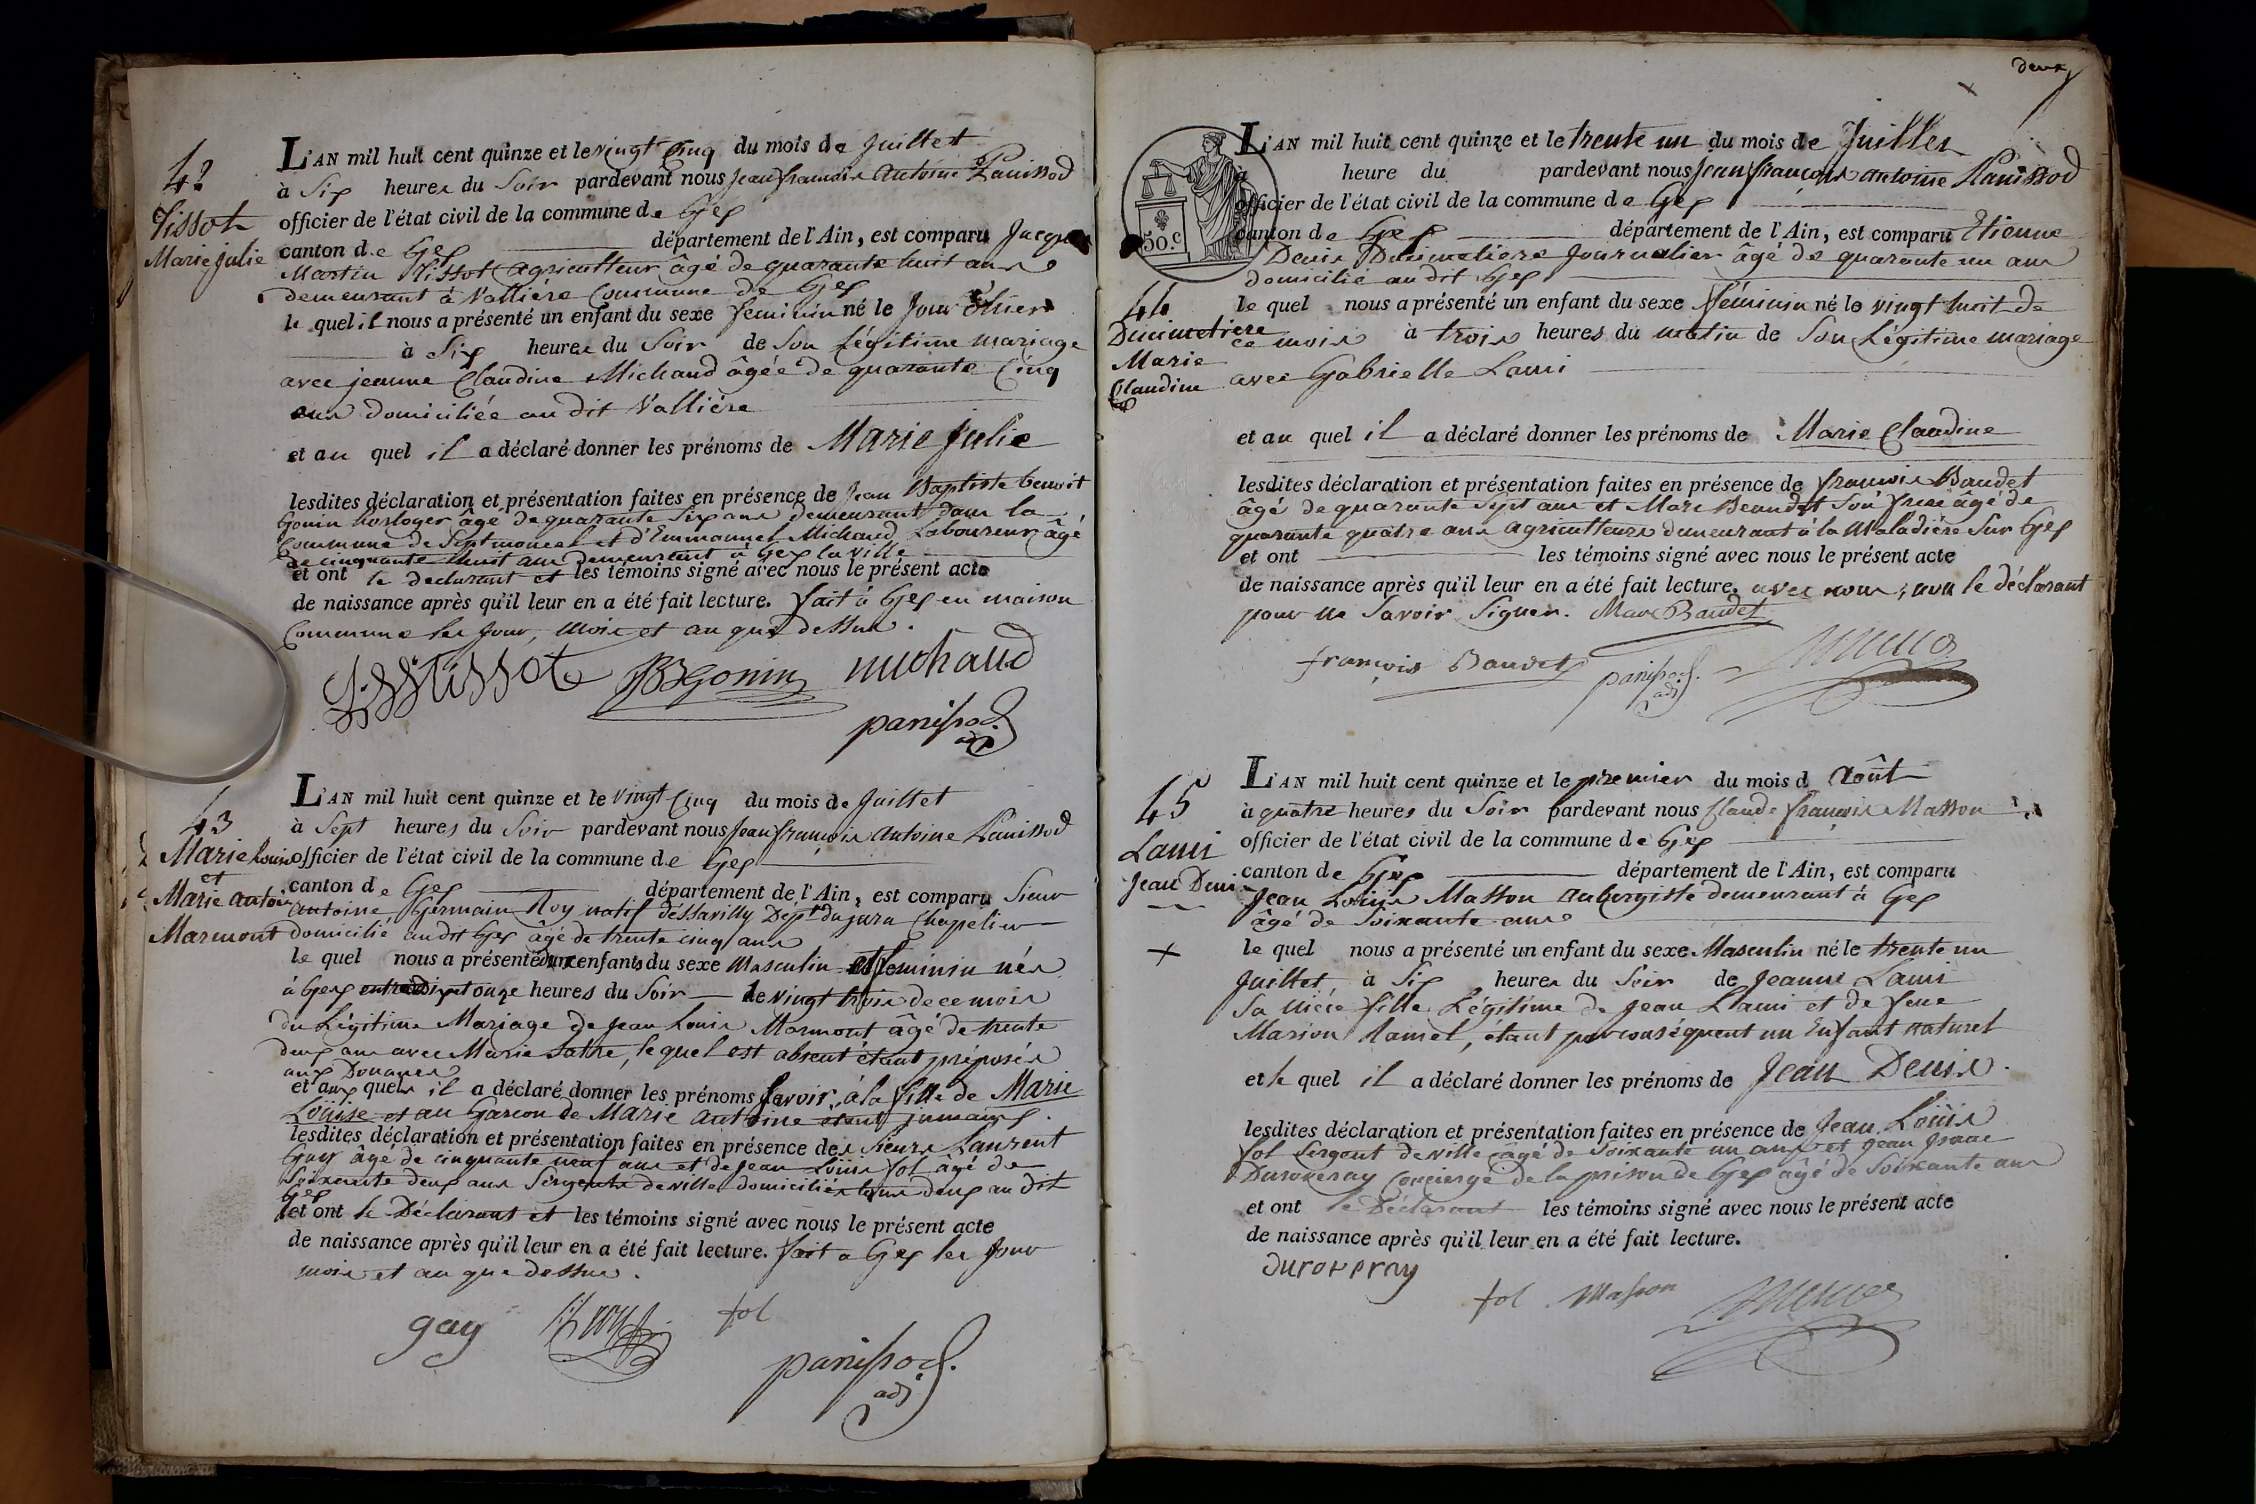 42
Tissot
Marie Julie
L'AN mil huit cent quinze et le vingt Cinq du mois de Juillet
à Six heures du Soir pardevant nous Jean françois Antoine Panissod
officier de l'état civil de la commune de Gex
canton de Gex département de l'Ain, est comparu Jacques
Martin Tissot agriculteur âgé de quarante huit ans
demeurant à Vallière Commune de Gex
le quel il nous a présenté un enfant du sexe feminin né le Jour d'hier
à Six heures du Soir de Son Légitime mariage
avec jeanne Claudine Michaud âgée de quarante Cinq
ans domiciliée au dit Vallière
et au quel il a déclaré donner les prénoms de Marie Julie
lesdites déclaration et présentation faites en présence de Jean Baptiste benoit
Gonin horloger âgé de quarante Six ans demeurant dans la
Commune de Septmoncel et d'Emmanuel Michaud Laboureur âgé
de cinquante huit ans demeurant à Gex la ville
et ont le declarant et les témoins signé avec nous le présent acte
de naissance après qu'il leur en a été fait lecture. fait à Gex en maison
Commune les Jour, Mois et an que dessus.
Tissot JBBGonin michaud
panissod
adj
43
Marie Louise
et
Marie Antoine
Marmont
L'AN mil huit cent quinze et le vingt Cinq du mois de Juillet
à Sept heures du Soir pardevant nous Jean françois Antoine Panissod
officier de l'état civil de la commune de Gex
canton de Gex département de l'Ain, est comparu Sieur
Antoine Germain Roy natif Dept du jura Chapelier
domicilié audit Gex âgé de trente cinq ans
le quel nous a présenté deux enfants du sexe Masculin et feminin nés
à Gex onze heures du Soir le vingt trois de ce mois
du Légitime Mariage de Jean Louis Marmont âgé de trente
deux ans avec Marie Satre, lequel est absent étant préposés
aux Douanes
et aux quels il a déclaré donner les prénoms Savoir, à la fille de Marie
Louise et au Garçon de Marie Antoine étant jumaux.
lesdites déclaration et présentation faites en présence des Sieurs Laurent
Gay âgé de cinquante neuf ans et de Jean Louis fol âgé de
Soixante deux ans Sergents de ville domiciliés tous deux au dit
Gex
et ont le Déclarant et les témoins signé avec nous le présent acte
de naissance après qu'il leur en a été fait lecture. fait à Gex les Jour
mois et an que dessus.
gay Roy fol
panissod.
adj
deux
50 c
44
Dunimetiere
Marie
Claudine
L'AN mil huit cent quinze et le trente un du mois de Juillet
à heure du pardevant nous Jean françois antoine Panissod
officier de l'état civil de la commune de Gex
canton de Gex département de l'Ain, est comparu Etienne
Denis Dunimetiere Journalier âgé de quarante un ans
domicilié au dit Gex
le quel nous a présenté un enfant du sexe féminin né le vingt huit de
ce mois à trois heures du matin de Son Légitime mariage
avec Gabrielle Lami
et au quel il a déclaré donner les prénoms de Marie Claudine
lesdites déclaration et présentation faites en présence de françois Baudet
âgé de quarante Sept ans et Marc Beaudet Son frere âgé de
quarante quatre ans agriculteurs demeurant à la Maladière Sur Gex
et ont les témoins signé avec nous le présent acte
de naissance après qu'il leur en a été fait lecture. avec nous, non le déclarant
pour ne Savoir Signer. Marc Baudet
françois Baudet panissod.
adj
45
Lami
Jean Denis
L'AN mil huit cent quinze et le premier du mois d Août
à quatre heures du Soir pardevant nous Claude françois Masson
officier de l'état civil de la commune de Gex
canton de Gex département de l'Ain, est comparu
Jean Louis Masson aubergiste demeurant à Gex
âgé de Soixante ans
le quel nous a présenté un enfant du sexe Masculin né le trente un
Juillet, à Six heures du Soir de Jeanne Lami
Sa nièce fille Légitime de Jean Lami et de feue
Marion Ramel, étant par conséquent un Enfant naturel
et le quel il a déclaré donner les prénoms de Jean Denis.
lesdites déclaration et présentation faites en présence de Jean Louis
fol Sergent de ville âgé de Soixante un ans et Jean Isaac
Duroveray Concierge de la prison de Gex âgé de Soixante ans
et ont le Déclarant les témoins signé avec nous le présent acte
de naissance après qu'il leur en a été fait lecture.
duroveray
fol Masson